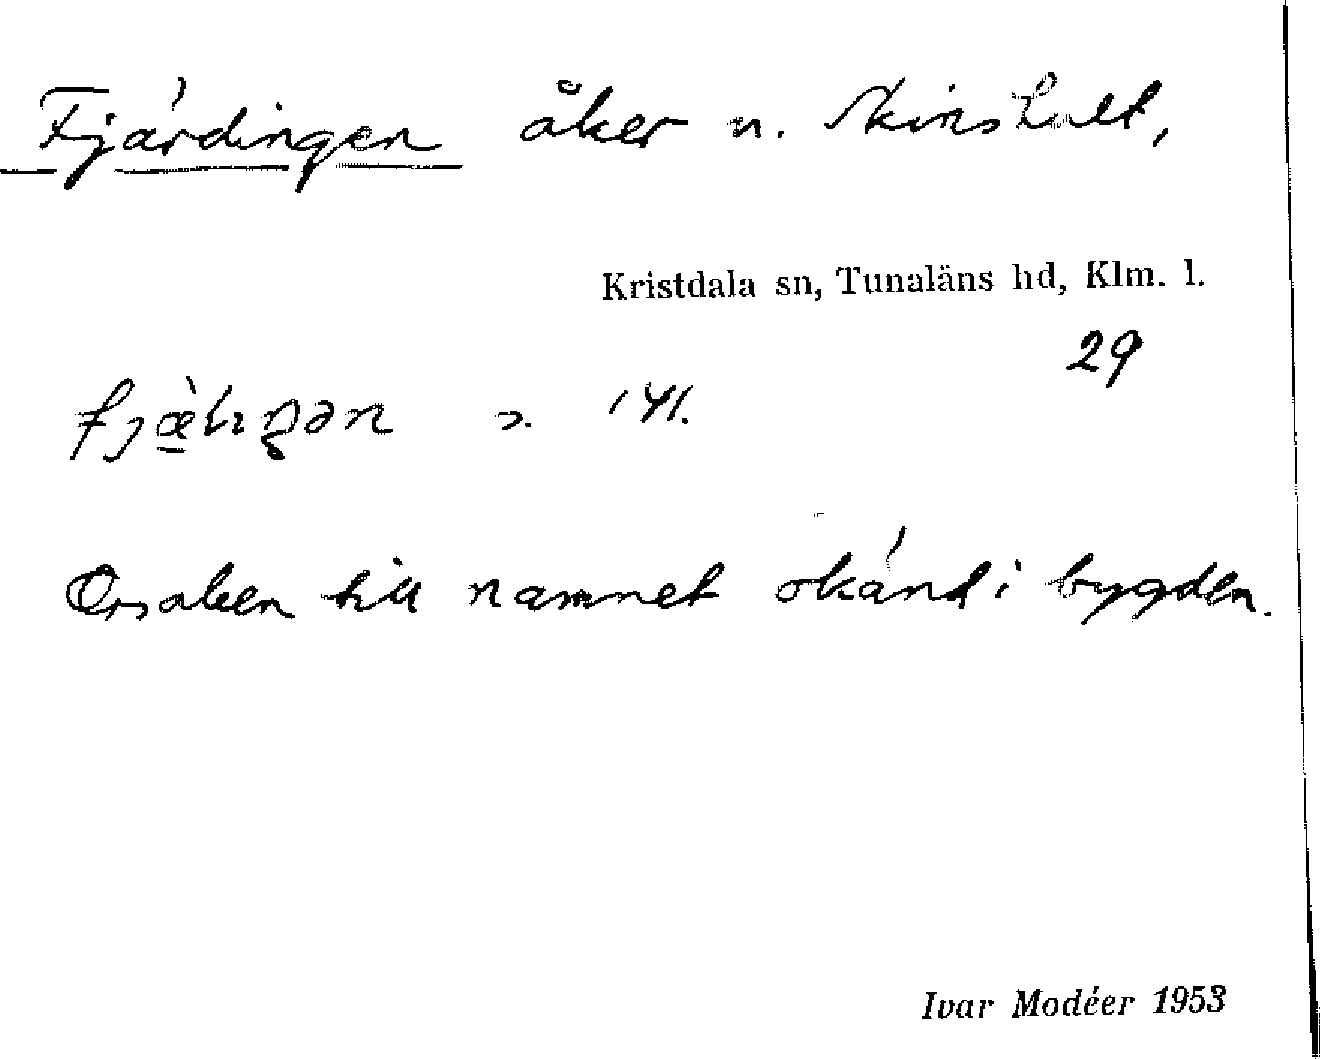 Fjärdingen åker n. Skinshult,
Kristdala sn, Tunaläns hd, Klm. l.
29
141.
Orsaken till namnet okänd i bygden.
Ivar Modéer 1953